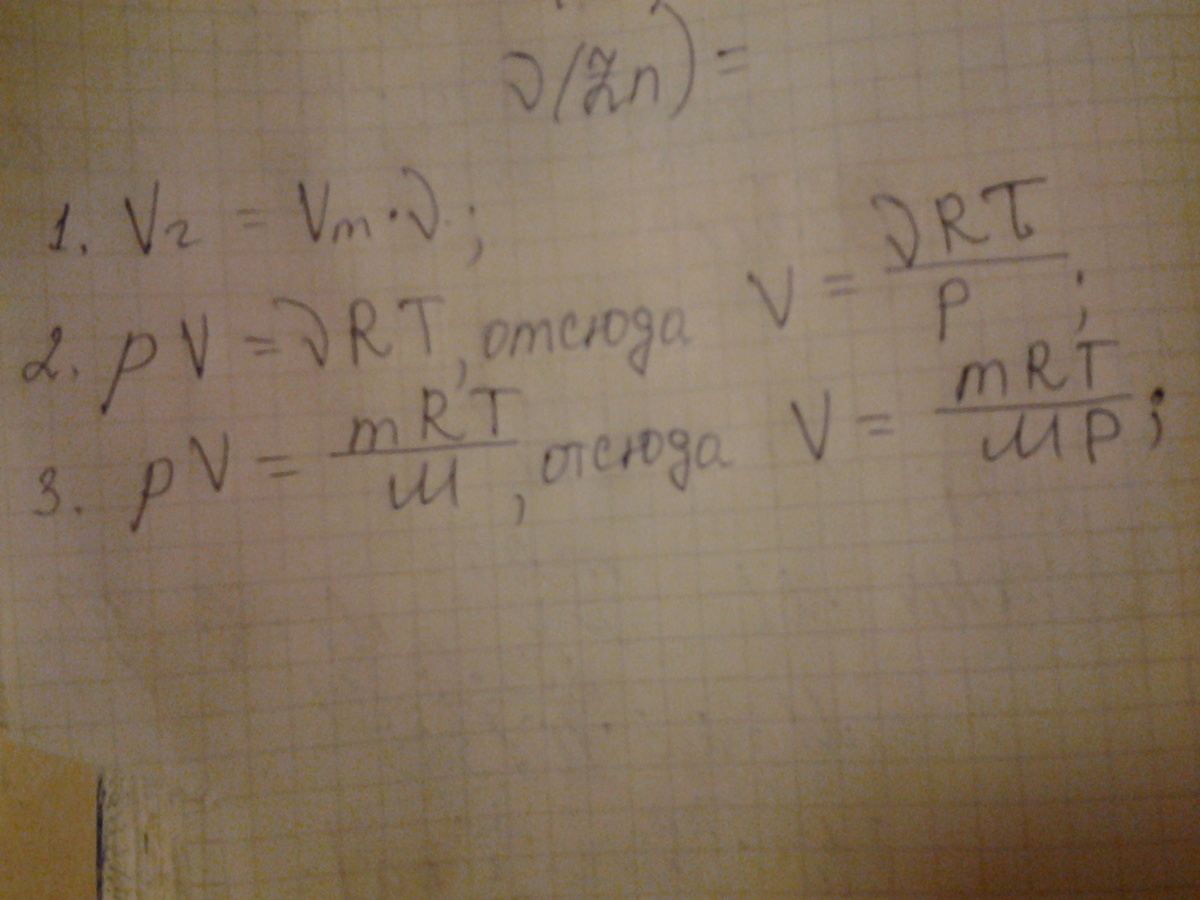 ν(Zn) =
1. Vг = Vm·ν;
2. pV = νRT, отсюда V = νRT/P;
3. pV = mRT/M, отсюда V = mRT/MP;